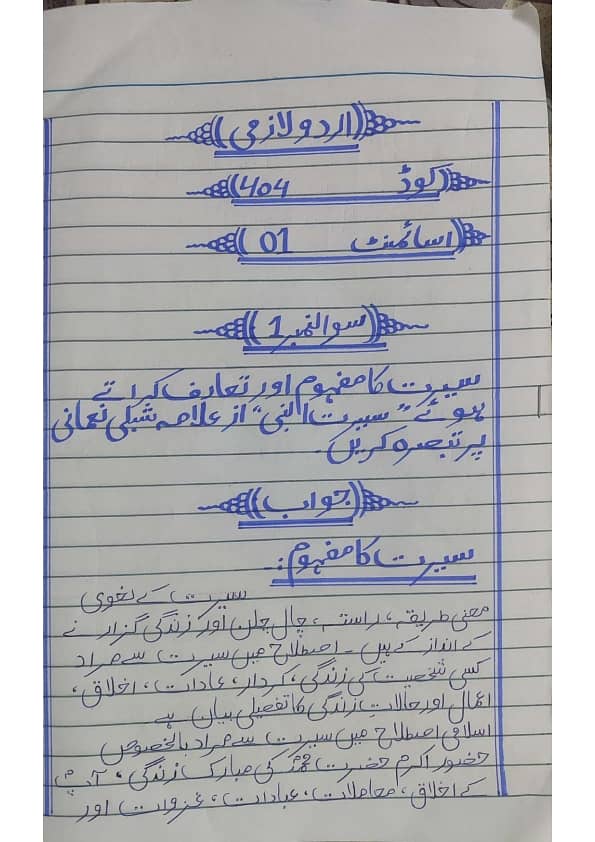 اردو لازمی
کوڈ 404
اسائمنٹ 01
سوالنمبر 1
سیرت کا مفہوم اور تعارف کراتے
ہوئے "سیرت النبی" از علامہ شبلی نعمانی
پر تبصرہ کریں۔
جواب
سیرت کا مفہوم :-
سیرت کے لغوی
معنی طریقہ، راستہ، چال چلن اور زندگی گزارنے
کے انداز کے ہیں۔ اصطلاح میں سیرت سے مراد
کسی شخصیت کی زندگی، کردار، عادات، اخلاق،
اعمال اور حالات زندگی کا تفصیلی بیان ہے
اسلامی اصطلاح میں سیرت سے مراد بالخصوص
حضور اکرم حضرت محمدؐ کی مبارک زندگی، آپؐ
کے اخلاق، معاملات، عبادات، غزوات اور